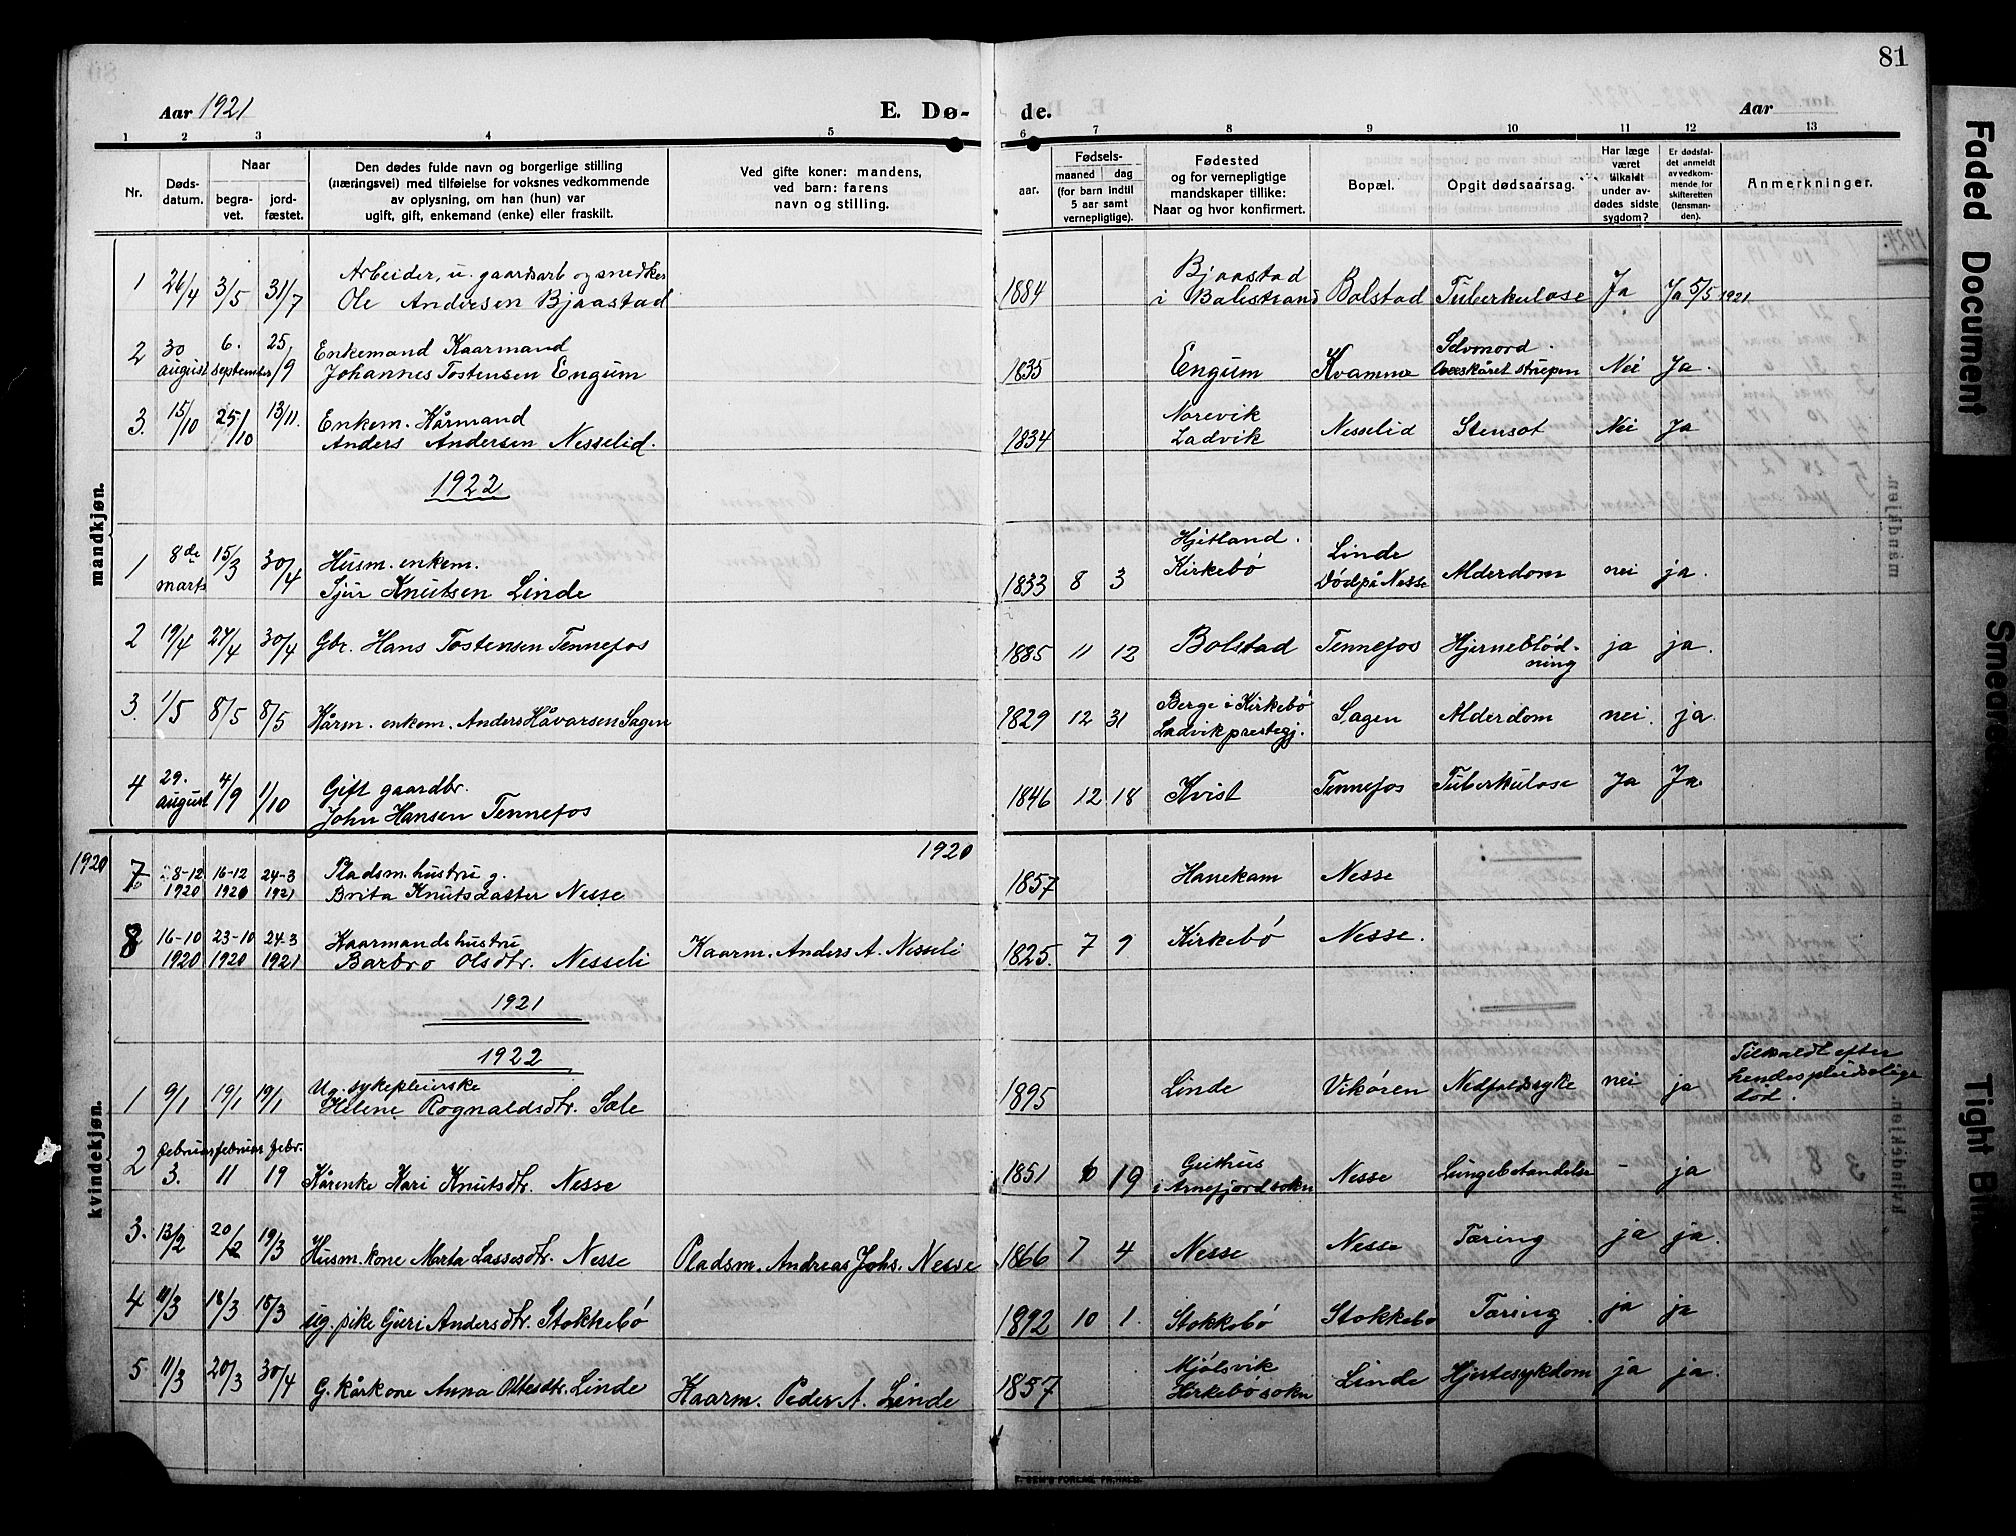 81
Aar 1921
E. Dø-
de.
Aar
1 2 3 4 5 6 7 8 9 10 11 12 13
Nr.
Døds-
datum.
Naar
begra-
vet.
jord-
fæstet.
Den dødes fulde navn og borgerlige stilling
(næringsvei) med tilføielse for voksnes vedkommende
av oplysning, om han (hun) var
ugift, gift, enkemand (enke) eller fraskilt.
Ved gifte koner: mandens,
ved barn: farens
navn og stilling.
aar.
Fødsels-
maaned dag
(for barn indtil
5 aar samt
vernepligtige).
Fødested
og for vernepligtige
mandskaper tillike:
Naar og hvor konfirmert.
Bopæl.
Opgit dødsaarsag.
Har læge
været
tilkaldt
under av-
dødes sidste
sygdom?
Er dødsfal-
det anmeldt
av vedkom-
mende for
skifteretten
(lensman-
den).
Anmerkninger.
mandkjøn.
1 26/4 3/5 31/7 Arbeider, u. gaardsarb og snedker
Ole Andersen Bjaastad
1884 Bjaastad
i Balestrand Bolstad Tuberkulose Ja Ja 5/5 1921
2 30 august 6. september 25./9 Enkemand Kaarmand
Johannes Tostensen Engum
1835 Engum Kvamme Selvmord.
Overskåret strupen Nei Ja.
3. 15/10 25/10 13/11. Enkem. Kårmand
Anders Andersen Nesselid.
1834 Norevik
Ladvik Nesselid Stensot Nei Ja
1922
1 8de marts 15/3 30/4 Husm. enkem.
Sjur Knutsen Linde
1833 8 3 Hjetland.
Kirkebö Linde
Död på Nesse Alderdom nei ja.
2 19/4 27/4 30/4 Gbr. Hans Tostensen Tennefos
1885 11 12 Bolstad Tennefos Hjerneblöd-
ning ja ja.
3. 1/5 8/5 8/5 Kårm. enkem. Anders Håvarsen Sagen
1829 12 31 Berge i Kirkebö
Ladvik prestegj. Sagen Alderdom nei. ja.
4 29. august 4/9 1/10 Gift gaardbr.
John Hansen Tennefos
1846 12 18 Kvist Tennefos Tuberkulose Ja Ja.
kvindekjøn.
1920
1920
7 8-12 1920 16-12 1920 24-3 1921 Pladsm. hustru g.
Brita Knutsdatter Nesse
1857 Hanekam Nesse
8 16-10 1920 23-10 1920 24-3 1921 Kaarmandshustru
Barbro Olsdtr. Nesseli Kaarm. Anders A. Nesseli
1825. 7 9 Kirkebö Nesse.
1921
1922
1 9/1 19/1 19/1 Ug. sykepleierske
Helene Rognaldsdtr. Sæle
1895 Linde Vikören Nedfaldssyke nei ja Tilkaldt efter
hendes pludselige
död.
2 februar 3. februar 11 febr. 19 Kårenke Kari Knutsdtr. Nesse
1851 6 19 Geithus
i Arnefjord sokn Nesse Lungebetændelse - ja
3. 13/2 20/2 19/3 Husm. kone Marta Lassesdtr. Nesse Pladsm. Andreas Johs. Nesse
1866 7 4 Nesse Nesse Tæring ja ja.
4 11/3 18/3 18/3 ug. pike Guri Andersdtr. Stokkebö
1892 10 1. Stokkebö Stokkebö Tæring. ja ja
5. 11/3 20/3 30/4 G. kårkone Anna Ottesdtr. Linde Kaarm. Peder A. Linde
1857 Mjölsvik
Kirkebö sokn Linde Hjertesykdom ja ja.
F. BEM'S FORLAG, FR.HALD.
Faded Document
Smeared
Tight Bin